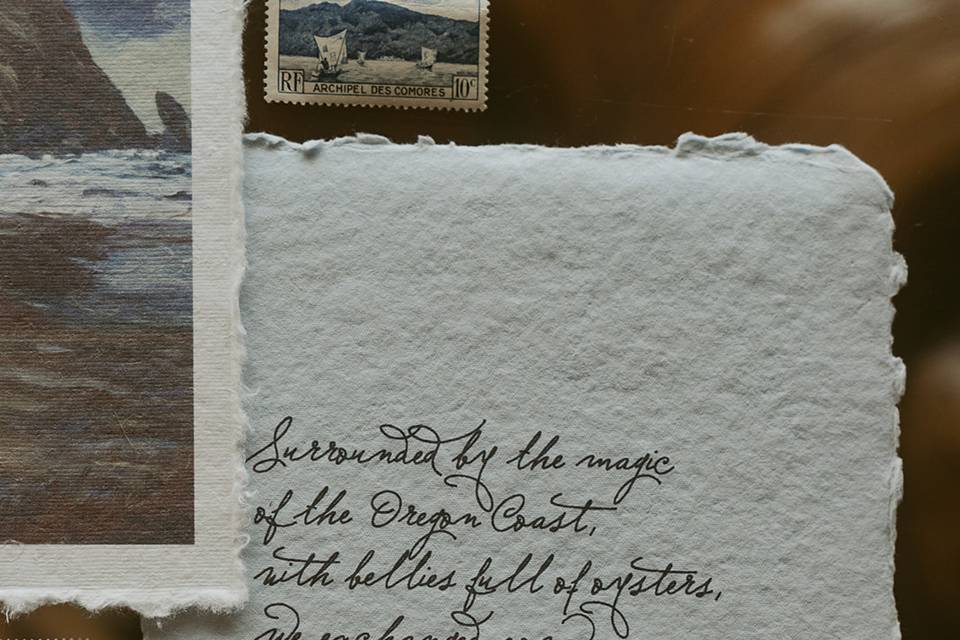 RF ARCHIPEL DES COMORES 10c
Surrounded by the magic
of the Oregon Coast,
with bellies full of oysters,
we exchanged